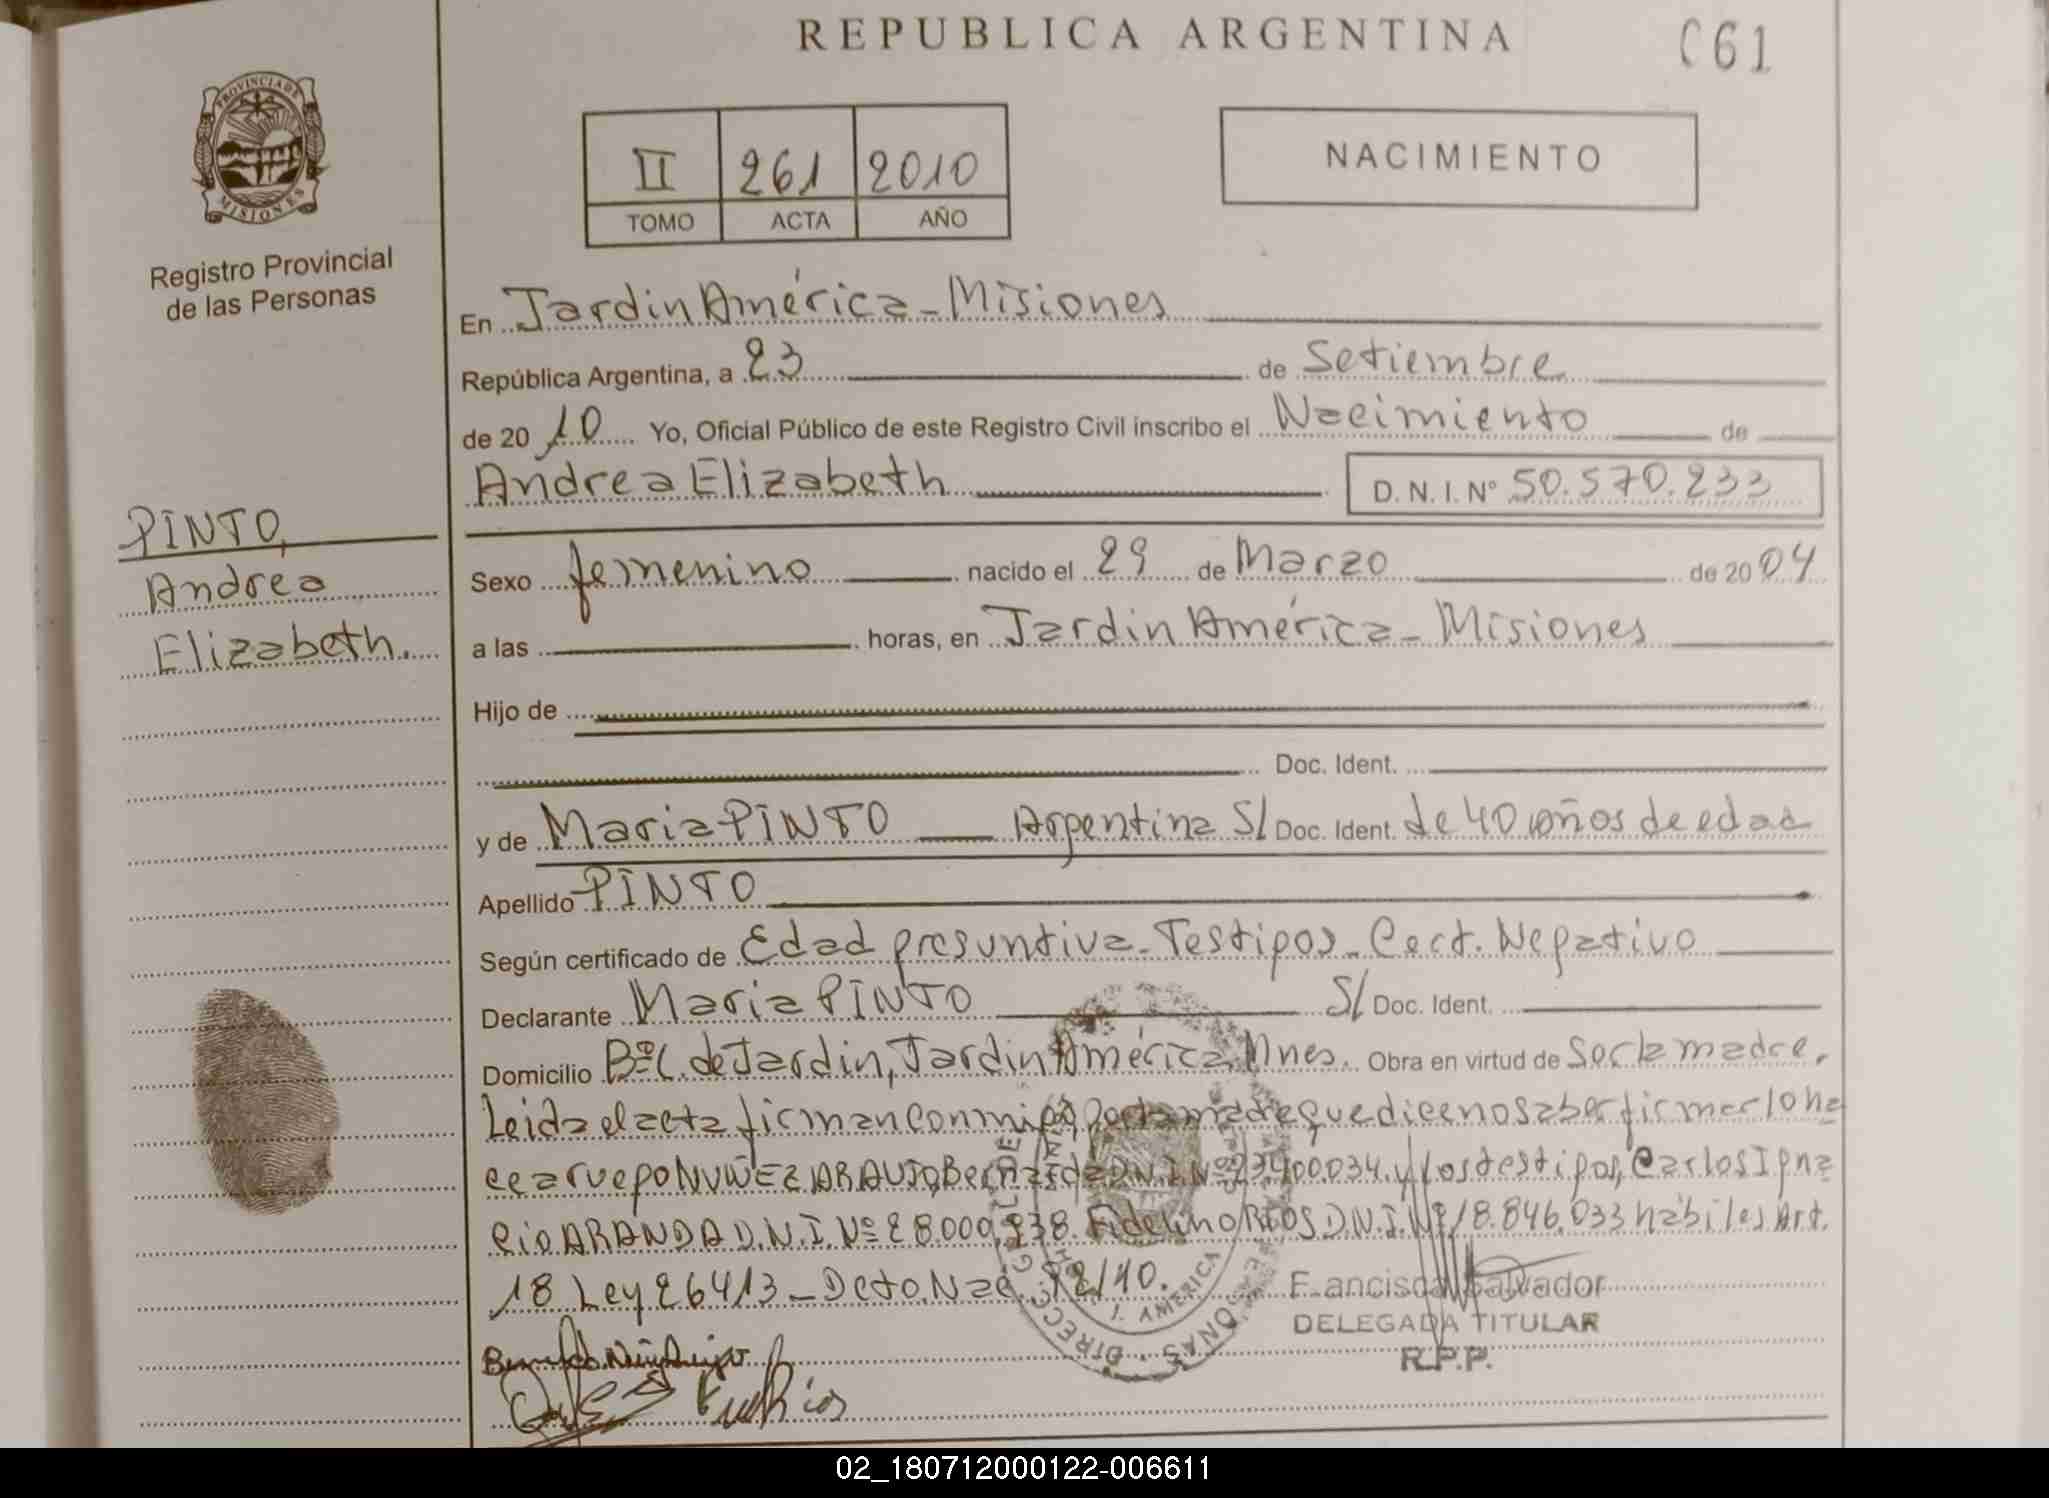 REPUBLICA ARGENTINA
C61
PROVINCIA DE
MISIONES
Registro Provincial
de las Personas
II 261 2010
TOMO ACTA AÑO
NACIMIENTO
En Jardin América - Misiones
República Argentina, a 23 de Setiembre
de 2010 Yo, Oficial Público de este Registro Civil inscribo el Nacimiento de
Andrea Elizabeth D. N. I. Nº 50.570.233
PINTO,
Andrea
Elizabeth.
Sexo femenino nacido el 29 de Marzo de 2004
a las horas, en Jardin América - Misiones
Hijo de
Doc. Ident.
y de Maria PINTO Argentina S/ Doc. Ident. de 40 años de edad
Apellido PINTO
Según certificado de Edad presuntiva - Testigos - Cert. Negativo
Declarante Maria PINTO S/ Doc. Ident.
Domicilio Bº C. de Jardin, Jardin América Mnes. Obra en virtud de Ser la madre.
Leida el acta firman conmigo, por la madre que dice no saber firmar lo ha
ce a ruego NUÑEZ ARAUJO, Bernarda D.N.I. Nº 23.400.034. y los testigos, Carlos Igna
cio ARANDA D.N.I. Nº 28.000.238. Fidelino RIOS D.N.I. Nº 18.846.033 hábiles Art.
18 Ley 26413 - Dcto. Nac. 92/10.
Francisca Salvador
DELEGADA TITULAR
R.P.P.
J. AMERICA
Rios
02_180712000122-006611